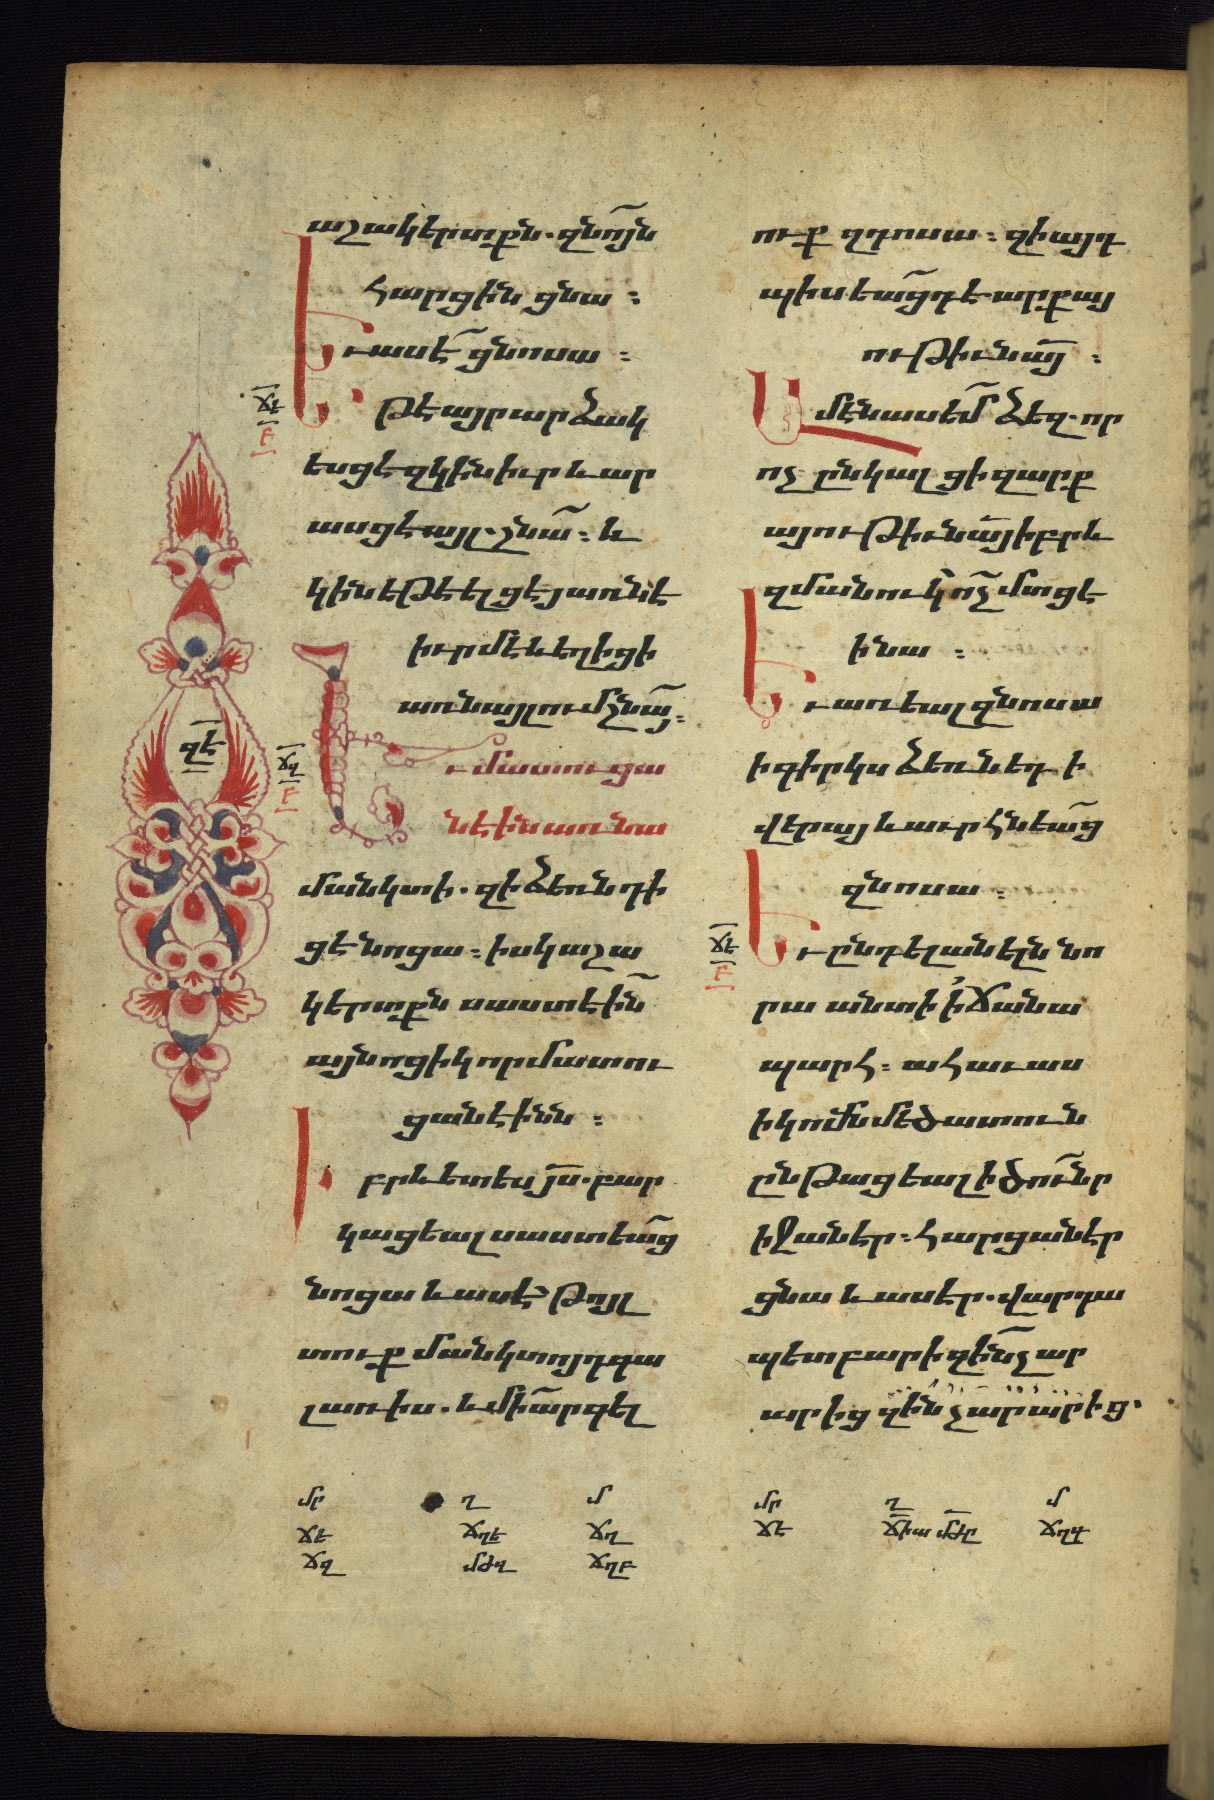 աշակերտքն. զնոյն
հարցին ցնա :
Եւ ասէ ցնոսա :
ճե
Բ
Եթէ այր արձակ
եսցէ զկին իւր և առ
ասցէ այլ. շնա : և
կին եթէ ելցէ յառնէ
իւրմէ և եղիցի
առն այլում շնայ :
ճզ
Բ
Եւ մատուցա
նէին առ նա
մանկտի. զի ձեռն դի
ցէ նոցա : իսկ աշա
կերտքն սաստէին
այնոցիկ որ մատու
ցանէինն :
Իբրև ետես յս. բար
կացեալ սաստեաց
նոցա և ասէ թոյլ
տուք մանկտոյդ գա
լ առ իս. և մի արգել
ուք զդոսա : զի այդ
պիսեացդ է արքայ
ութիւն այ :
Ամէն ասեմ ձեզ. որ
ոչ ընկալցի զարք
այութիւն այ իբրև
զմանուկ ոչ մտցէ
ի նա :
Եւ առեալ զնոսա
ի գիրկս ձեռն եդ ի
վերայ և աւրհնեաց
զնոսա :
ճէ
Բ
Եւ ընդ ելանելն նո
րա անտի ի ճանա
պարհ : ահաւաս
իկ ոմն մեծատուն
ընթացեալ ի ծունր
իջաներ : հարցաներ
ցնա և ասեր. վարդա
պետ բարի զինչ ար
արից զինչ արարից.
մր ղ մ
ճե ճղե ճղ
ճզ ճղբ
մր ղ մ
ճէ